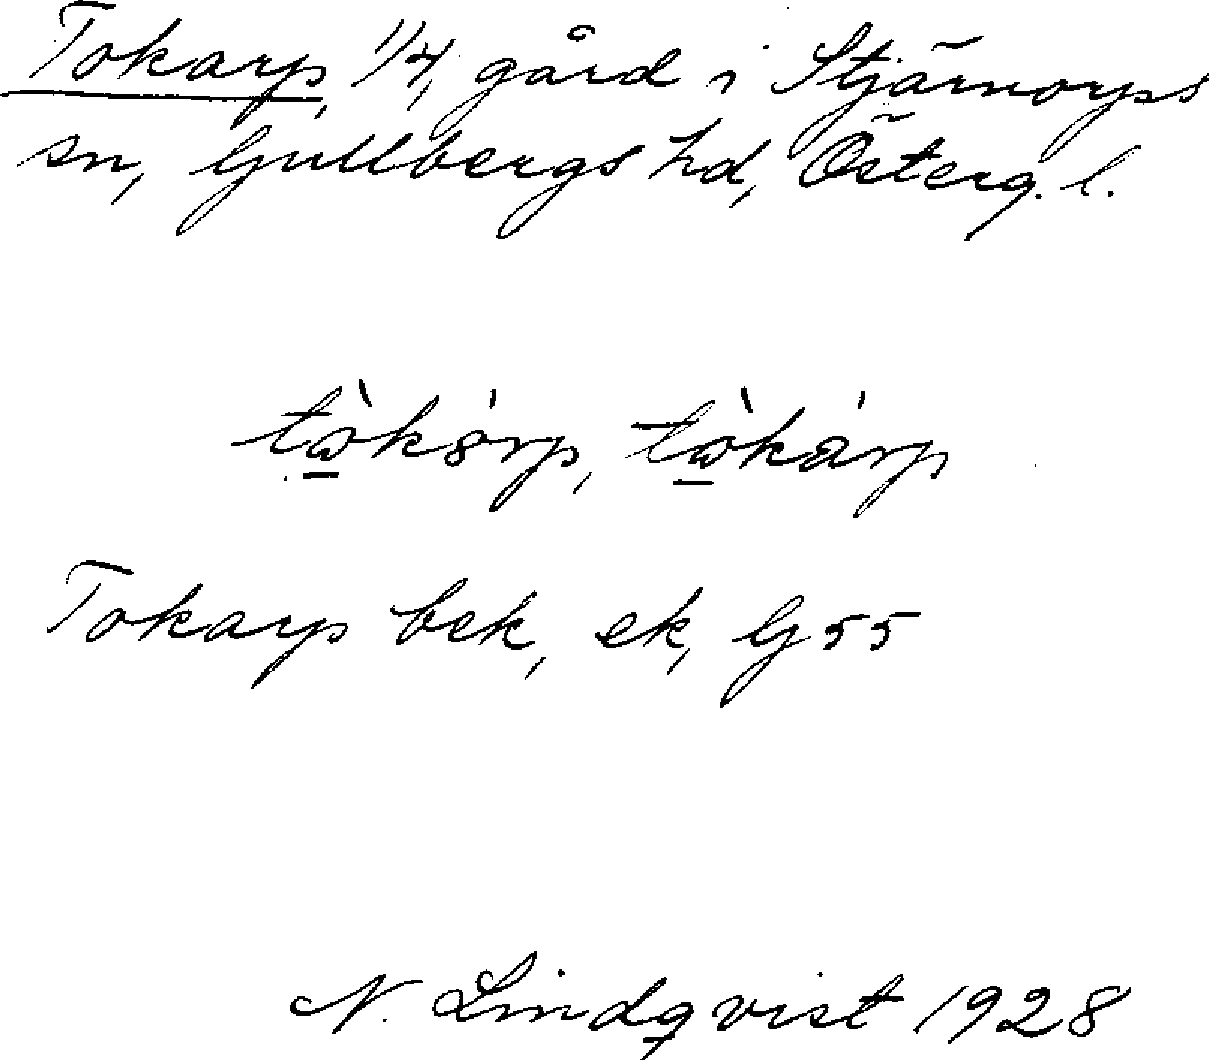 Tokarp, 1/4, gård i Stjärnorps
sn, Gullbergs hd, Österg. l.
tὼ̲kȯrp, tὼ̲kȧrp
Tokarp bek, ek, G 55
N. Lindqvist 1928